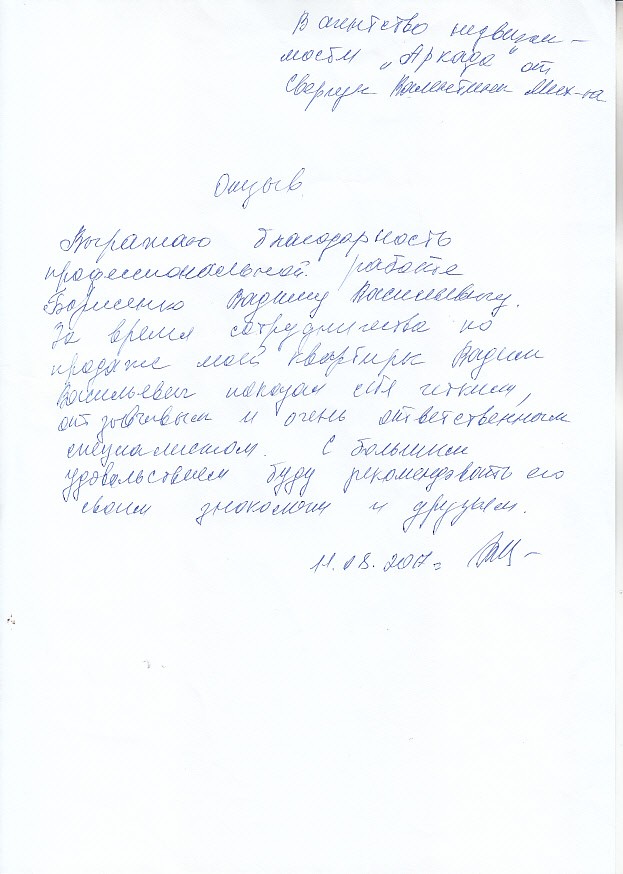 В агентство недвижи-
мости „Аркада" от
Валентины Мих-на
Отзыв.
Выражаю благодарность
профессиональной работе
Борисенко Вадиму Васильевичу.
За время сотрудничества по
продаже моей квартиры Вадим
Васильевич показал себя чутким,
отзывчивым и очень ответственным
специалистом. С большим
удовольствием буду рекомендовать его
своим знакомым и друзьям.